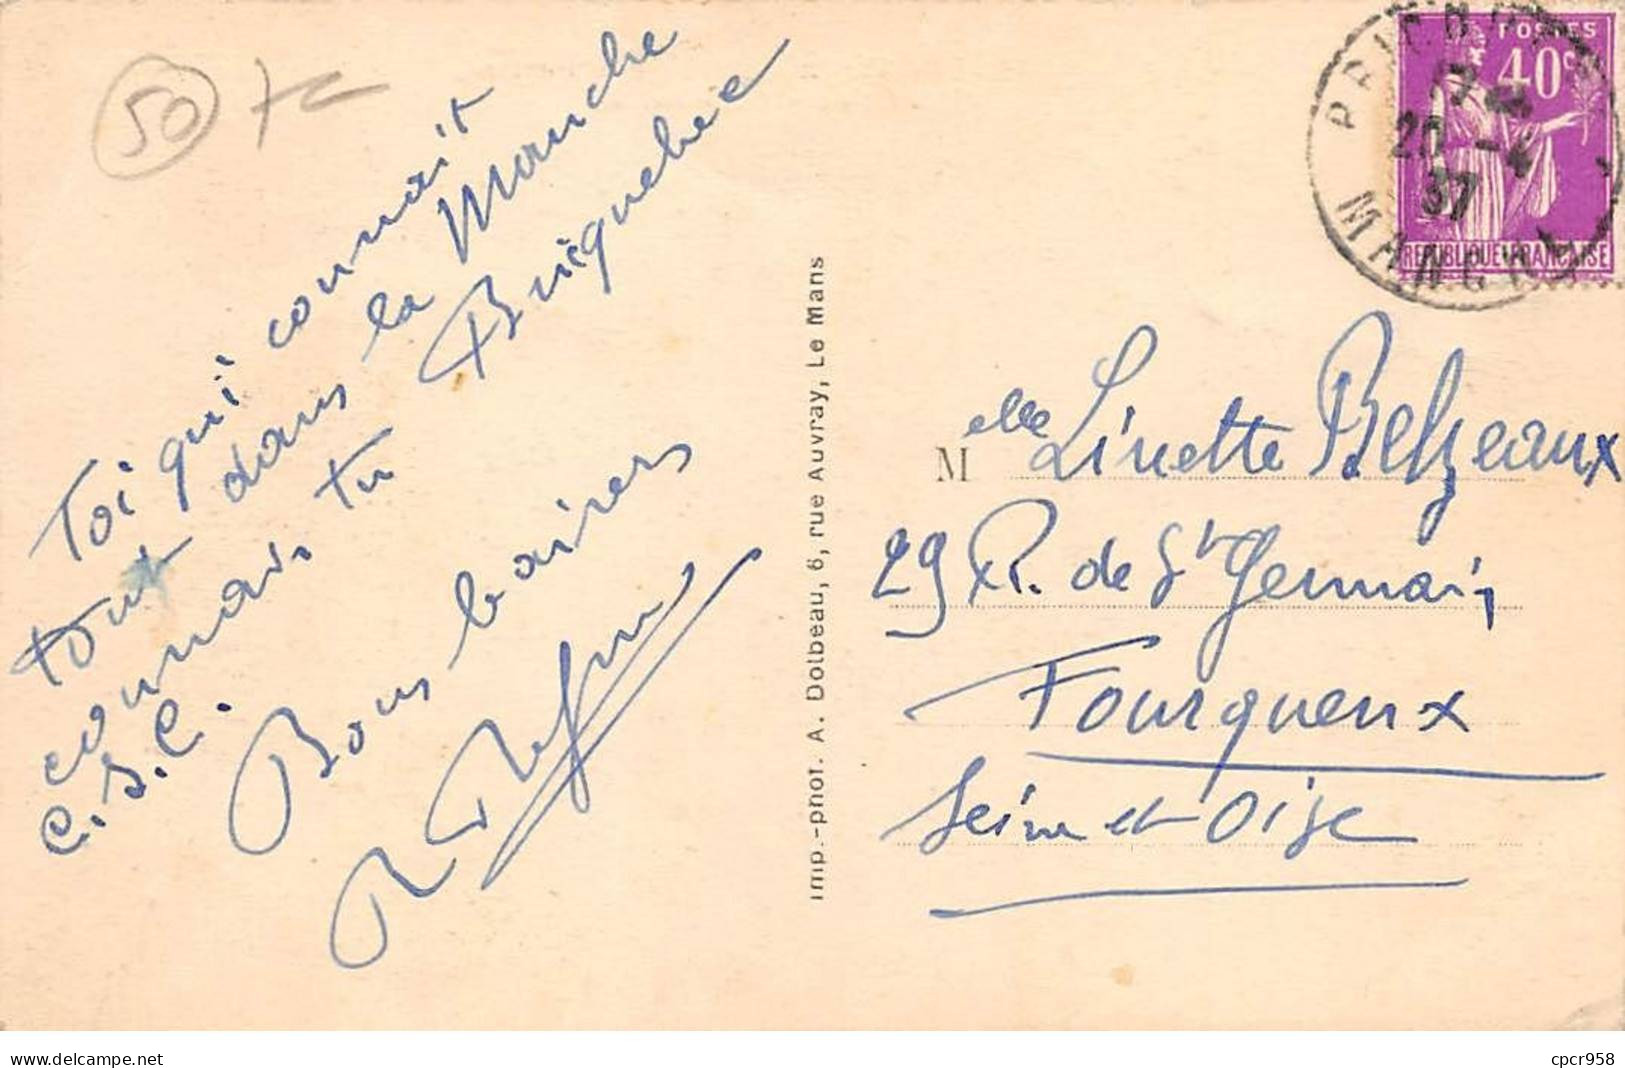 50 7c
Toi qui connait
tout dans la Manche
connais tu Bricquebec
C.S.C.
Bons baisers
Imp.-phot. A. Dolbeau, 6, rue Auvray, Le Mans
POSTES
40c
REPUBLIQUE FRANCAISE
17
20 -4
37
MANCHE
Melle Linette Belzeaux
29 R. de St Germain
Fourqueux
Seine et Oise
www.delcampe.net
cpcr958